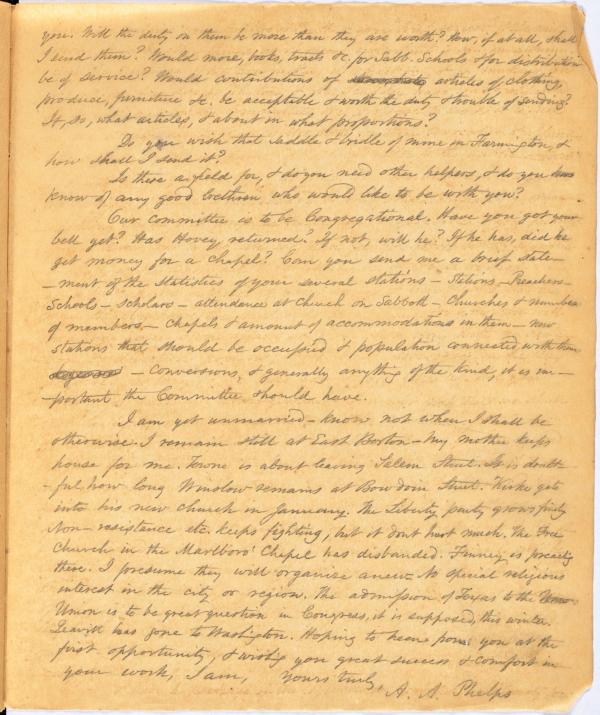 you. Will the duty on them be more than they are worth? How, if at all, shall
I send them? Would more, books, tracts &c. for Sabb. Schools & for distribution
be of service? Would contributions of articles of clothing,
produce, furniture &c. be acceptable & worth the duty & trouble of sending?
If, so, what articles, & about in what proportions?
Do you wish that saddle & bridle of mine in Farmington, &
how shall I send it?
Is there a field for, & do you need other helpers, & do you
know of any good brethren, who would like to be with you?
Our committee is to be Congregational. Have you got your
bell yet? Has Hovey, returned? If not, will he? If he has, did he
get money for a chapel? Can you send me a brief state-
-ment of the Statistics of your several stations - Stations - Preachers -
Schools - scholars - attendance at church on Sabbath - Churches & number
of members - Chapels & amount of accommodations in them - new
stations that should be occupied & population connected with them
- Conversions, & generally anything of the kind, it is im-
-portant the Committee should have.
I am yet unmarried - know not when I shall be
otherwise. I remain still at East Boston - My mother keeps
house for me. Towne is about leaving Salem Street. It is doubt-
-ful how long Winslow remains at Bowdoin Street. Kirke gets
into his new church in January. The Liberty party grows finely
Non-resistance etc. keeps fighting, but it dont hurt much. The Free
Church in the Marlboro' Chapel has disbanded. Finney is preaching
there. I presume they will organise anew. No special religious
interest in the city or region. The admission of Texas to the
Union is to be great question in Congress, it is supposed, this winter.
Leavitt has gone to Washington. Hoping to hear from you at the
first opportunity, & wishing you great success & comfort in
your work, I am, Yours truly,
A. A. Phelps